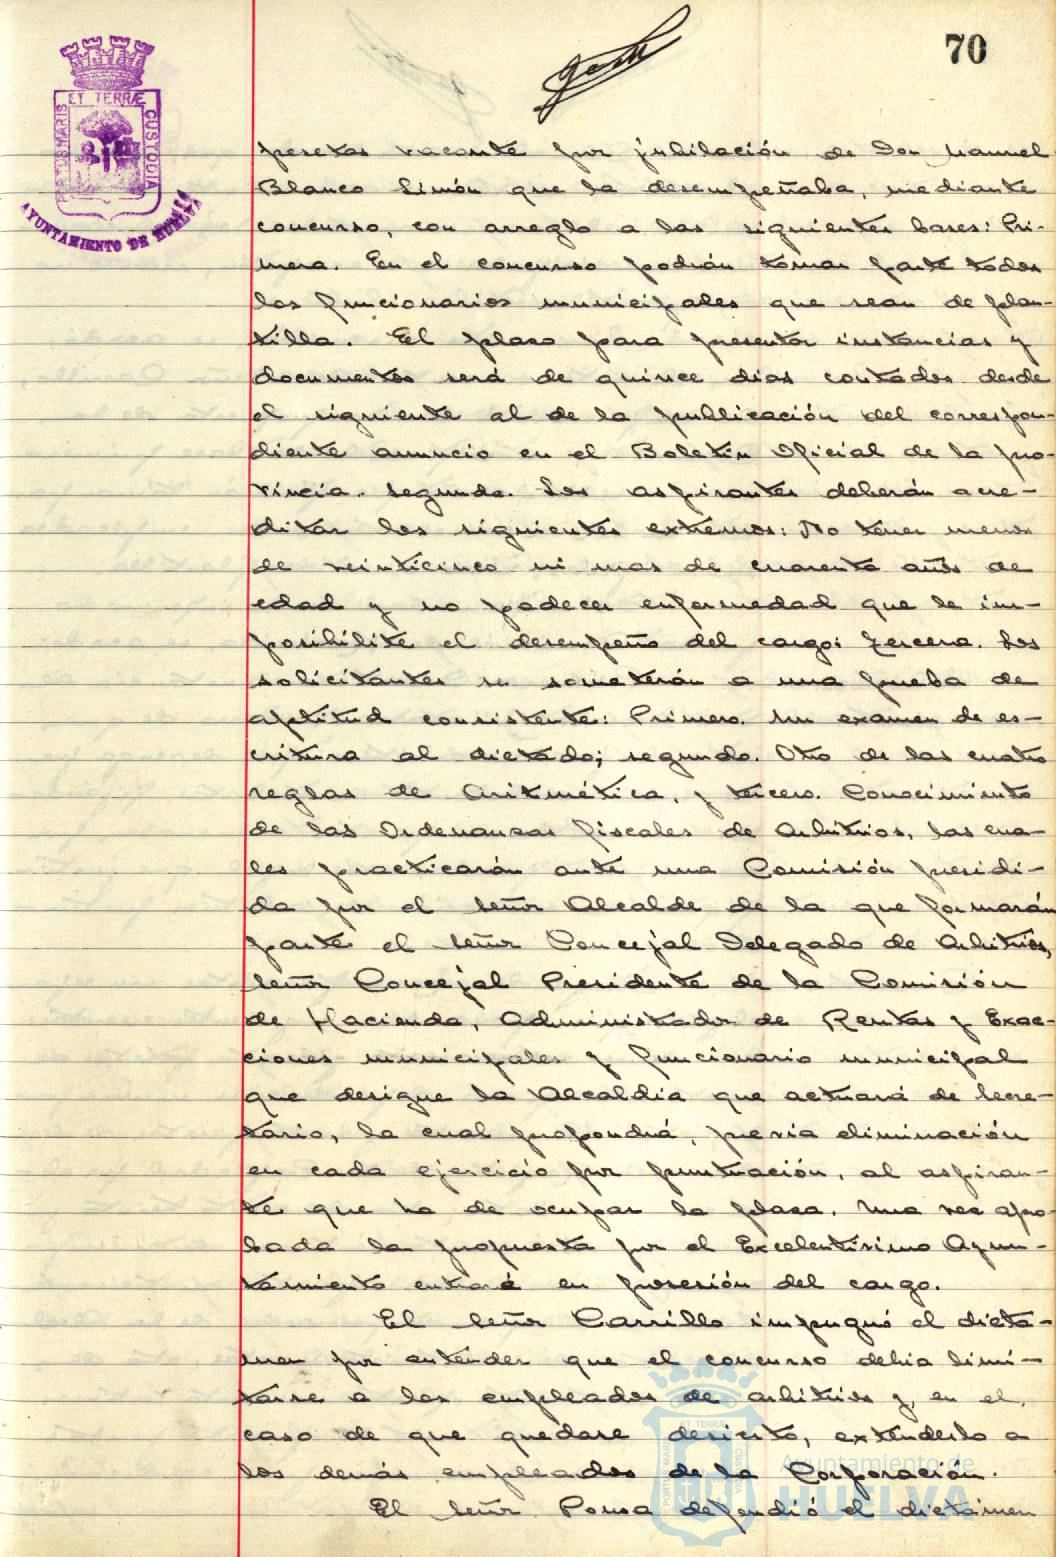 70
ET TERRÆ
PORTUS MARIS
CUSTODIA
AYUNTAMIENTO DE HUELVA
pesetas vacante por jubilación de Don Manuel
Blanco Limón que la desempeñaba, mediante
concurso, con arreglo a las siguientes bases: Pri-
mera. En el concurso podrán tomar parte todos
los funcionarios municipales que sean de plan-
tilla. El plazo para presentar instancias y
documentos será de quince dias contados desde
el siguiente al de la publicación del correspon-
diente anuncio en el Boletin Oficial de la pro-
vincia. Segunda. Los aspirantes deberán acre-
ditar los siguientes extremos: No tener menos
de veinticinco ni mas de cuarenta años de
edad y no padecer enfermedad que le im-
posibilite el desempeño del cargo: Tercera. Los
solicitantes se someterán a una prueba de
aptitud consistente: Primero. Un examen de es-
critura al dictado; segundo. Otro de las cuatro
reglas de Aritmética, y tercero. Conocimiento
de las Ordenanzas fiscales de Arbitrios, las cua-
les practicarán ante una Comisión presidi-
da por el señor Alcalde de la que formarán
parte el señor Concejal Delegado de Arbitrios,
señor Concejal Presidente de la Comisión
de Hacienda, Administrador de Rentas y Exac-
ciones municipales y funcionario municipal
que designe la Alcaldia que actuará de Secre-
tario, la cual propondrá, previa eliminación
en cada ejercicio por puntuación, al aspiran-
te que ha de ocupar la plaza. Una vez apro-
bada la propuesta por el Excelentisimo Ayun-
tamiento entrará en posesión del cargo.
El señor Carrillo impugnó el dictá-
men por entender que el concurso debia limi-
tarse a los empleados de arbitrios y, en el
caso de que quedare desierto, extenderlo a
los demás empleados de la Corporación.
El señor Ponsa defendió el dictámen
Ayuntamiento de
HUELVA